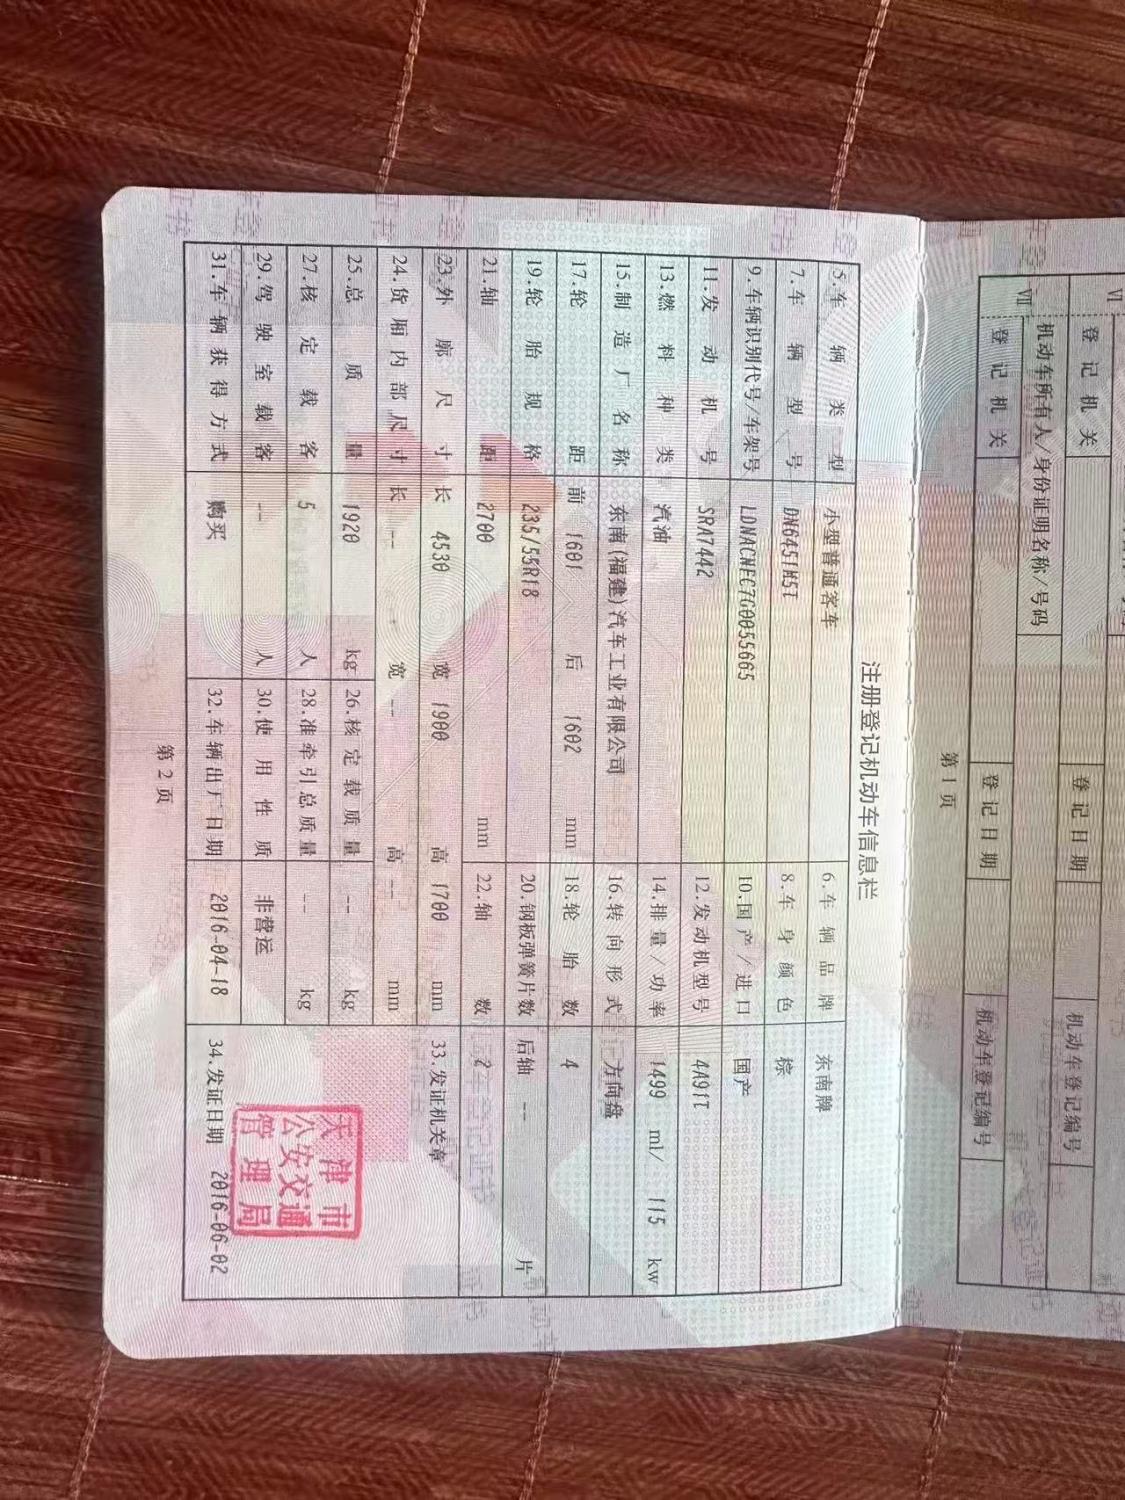 登记机关
登记日期
机动车登记编号
Ⅶ
机动车所有人/身份证明名称/号码
登记机关
登记日期
机动车登记编号
第1页
注册登记机动车信息栏
5.车辆类型 小型普通客车 6.车辆品牌 东南牌
7.车辆型号 DN6451M5T 8.车身颜色 棕
9.车辆识别代号/车架号 LDNACNEC7G0055665 10.国产/进口 国产
11.发动机号 SRA7442 12.发动机型号 4A91T
13.燃料种类 汽油 14.排量/功率 1499 ml/ 115 kw
15.制造厂名称 东南(福建)汽车工业有限公司 16.转向形式 方向盘
17.轮距 前 1601 后 1602 mm 18.轮胎数 4
19.轮胎规格 235/55R18 20.钢板弹簧片数 后轴 -- 片
21.轴距 2700 mm 22.轴数 2
23.外廓尺寸 长 4530 宽 1900 高 1700 mm 33.发证机关章
24.货厢内部尺寸 长 -- 宽 -- 高 -- mm
25.总质量 1920 kg 26.核定载质量 -- kg
27.核定载客 5 人 28.准牵引总质量 -- kg
29.驾驶室载客 -- 人 30.使用性质 非营运
31.车辆获得方式 购买 32.车辆出厂日期 2016-04-18 34.发证日期 2016-06-02
天津市
公安交通
管理局
第2页